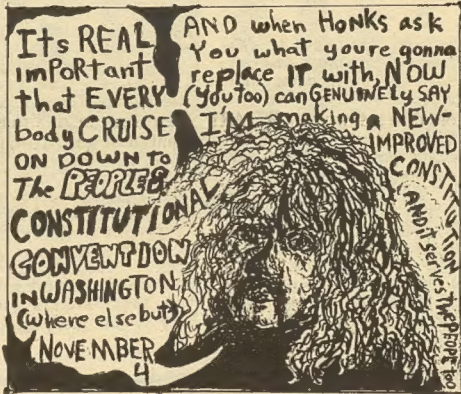 ITs REAL
imPORtant
that EVERY
body CRUISE
ON DOWN TO
The PEOPLES
CONSTITUTIONAL
CONVENTION
IN WASHINGTON
(where else but)
NOVEMBER
4
AND when HONKS ask
You what youre gonna
replace IT with, NOW
(you too) can GENUINELY SAY
I'M making a NEW-
IMPROVED
CONSTITUTION
AND it serves THE PEOPLE TOO